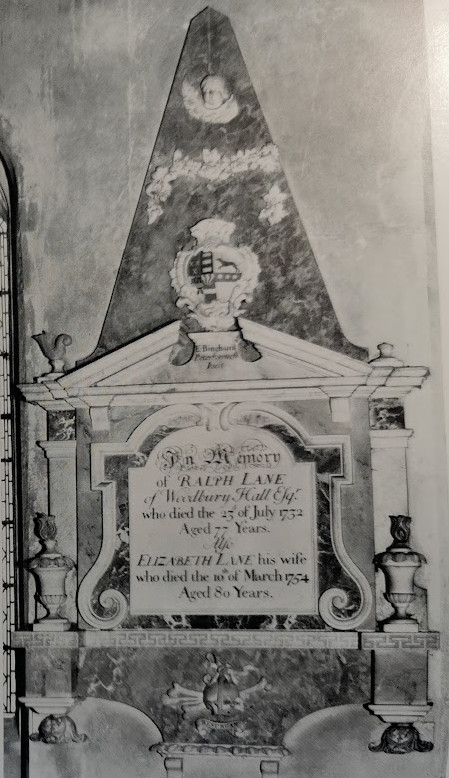 E. Bingham
Peterborough
fecit
In Memory
of RALPH LANE
of Woodbury Hall Esqr.
who died the 27th of July 1732
Aged 77 Years.
Also
ELIZABETH LANE his wife
who died the 10th of March 1754
Aged 80 Years.